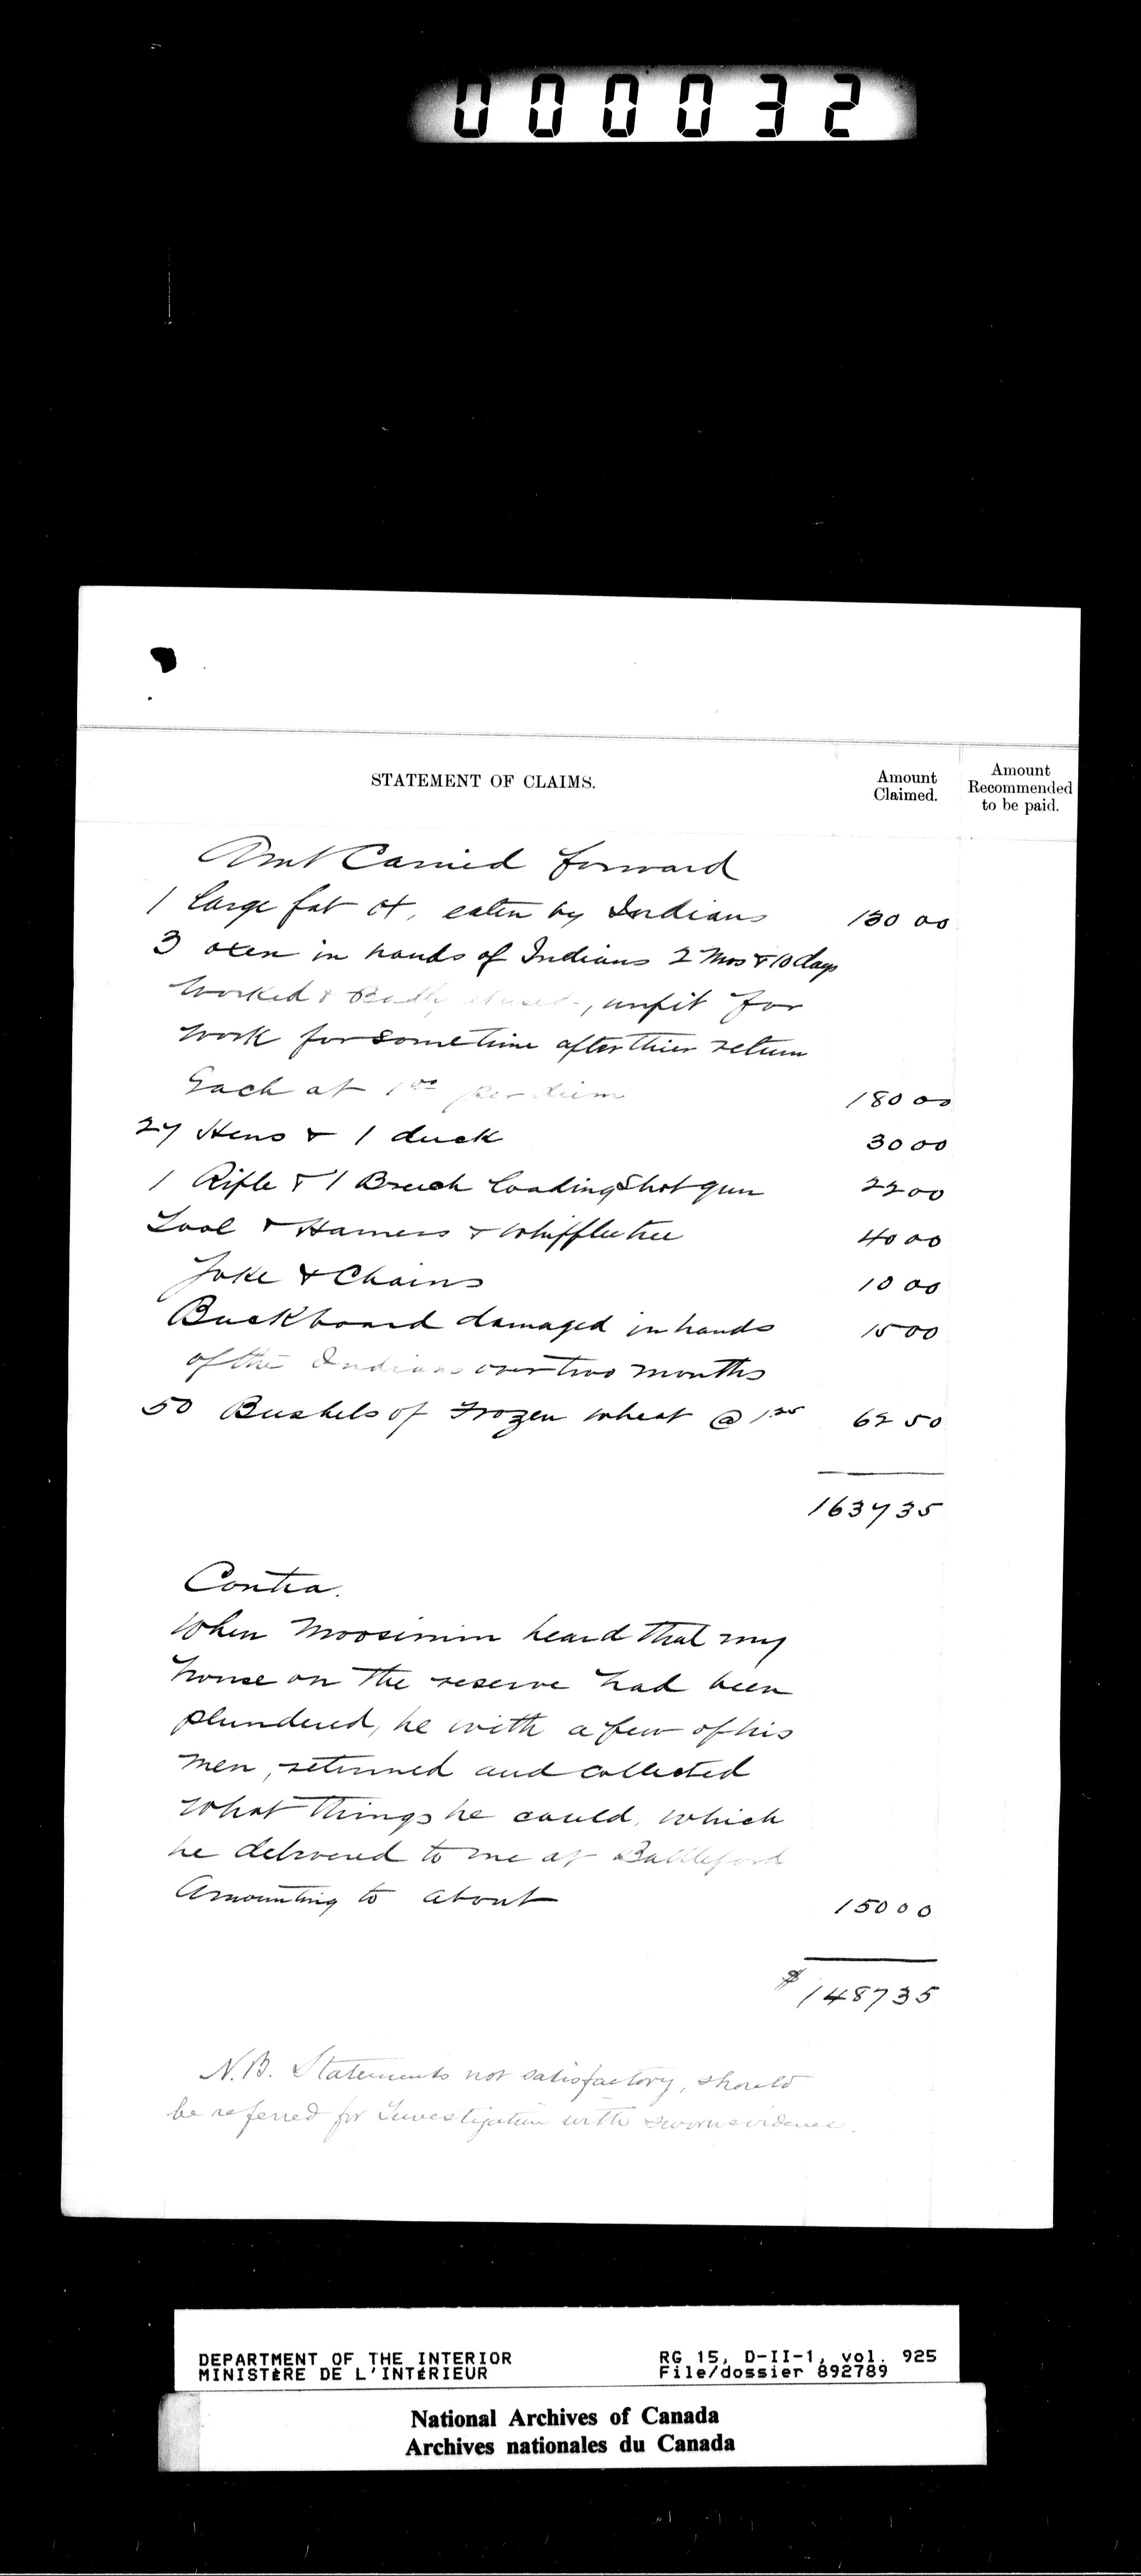 000032
STATEMENT OF CLAIMS.
Amount Claimed.
Amount Recommended to be paid.
Amt Carried forward
1 large fat ox, eaten by Indians 130 00
3 oxen in hands of Indians 2 Mos & 10 days
Worked & Badly abused, unfit for
work for some time after thier return
Each at 1 00 per diem 180 00
27 Hens & 1 duck 30 00
1 Rifle & 1 Breech loading Shot gun 22 00
Tool & Harness & Whiffletree 40 00
Yoke & Chains 10 00
Buckboard damaged in hands 15 00
of the Indians over two months
50 Bushels of Frozen wheat @ 1 25 62 50
1637 35
Contra.
When Moosimin heard that my
house on the reserve had been
plundered, he with a few of his
men, returned and collected
what things he could, which
he delivered to me at Battleford
Amounting to about 150 00
$ 1487 35
N.B. Statements not satisfactory, should
be referred for Investigation with sworn evidence.
DEPARTMENT OF THE INTERIOR
MINISTÈRE DE L'INTÉRIEUR
RG 15, D-II-1, vol. 925
File/dossier 892789
National Archives of Canada
Archives nationales du Canada